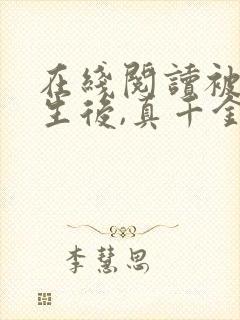 在綫閱讀被
生後,真千金
李慧思